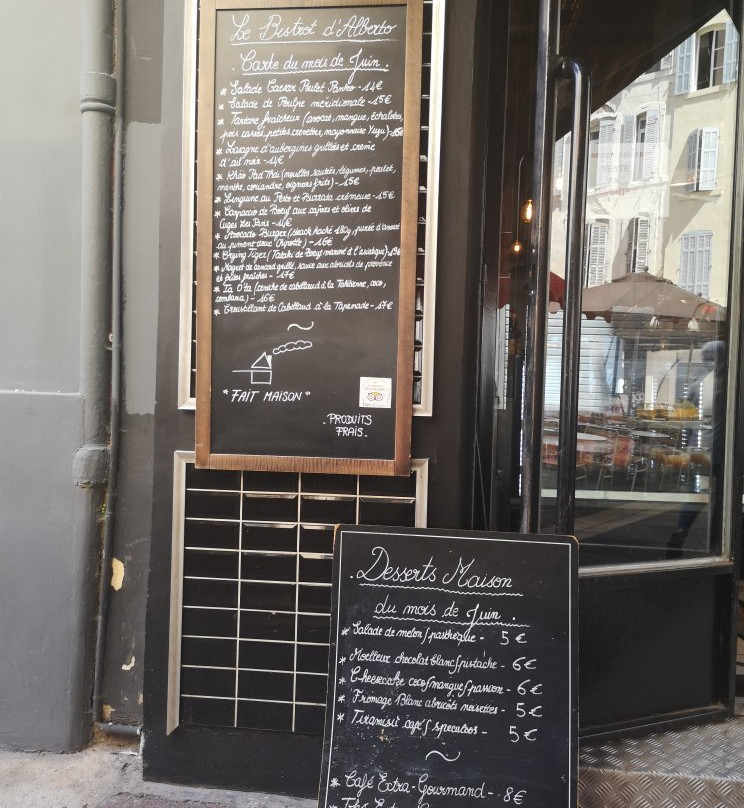 Le Bistrot d'Alberto
. Carte du mois de Juin .
* Salade Caesar Poulet Panko - 14€
* Salade de Poulpe méridionale - 15€
* Tartare fraîcheur (avocat, mangue, échalotes,
pois cassés, petites crevettes, mayonnaise Yuzu) - 15€
* Lasagne d'aubergines grillées et crème
d'ail noir - 14€
* Phao Pad Thaï (nouilles sautées, légumes, poulet,
menthe, coriandre, oignons frits) - 15€
* Linguine au Pesto et Burrata crémeuse - 15€
* Carpaccio de Boeuf aux câpres et olives de
Cuges Les Pins - 14€
* Avocado Burger (steack haché 180g, purée d'avocat
au piment doux) - 16€
* Crying Tiger (Tataki de Boeuf mariné à l'asiatique)
* Magret de canard grillé, sauce aux abricots de provence
et fraîches - 17€
* Ia O'ta (ceviche de cabillaud à la Tahitienne, coco,
combava) - 16€
* Croustillant de Cabillaud à la Tapenade - 17€
"FAIT MAISON"
- PRODUITS
FRAIS -
. Desserts Maison
du mois de Juin .
* Salade de melon/pastèque - 5€
* Moelleux chocolat blanc/pistache - 6€
* Cheesecake coco/mangue/passion - 6€
* Fromage Blanc abricots noisettes - 5€
* Tiramisù café/speculoos - 5€
* Café Extra-Gourmand - 8€